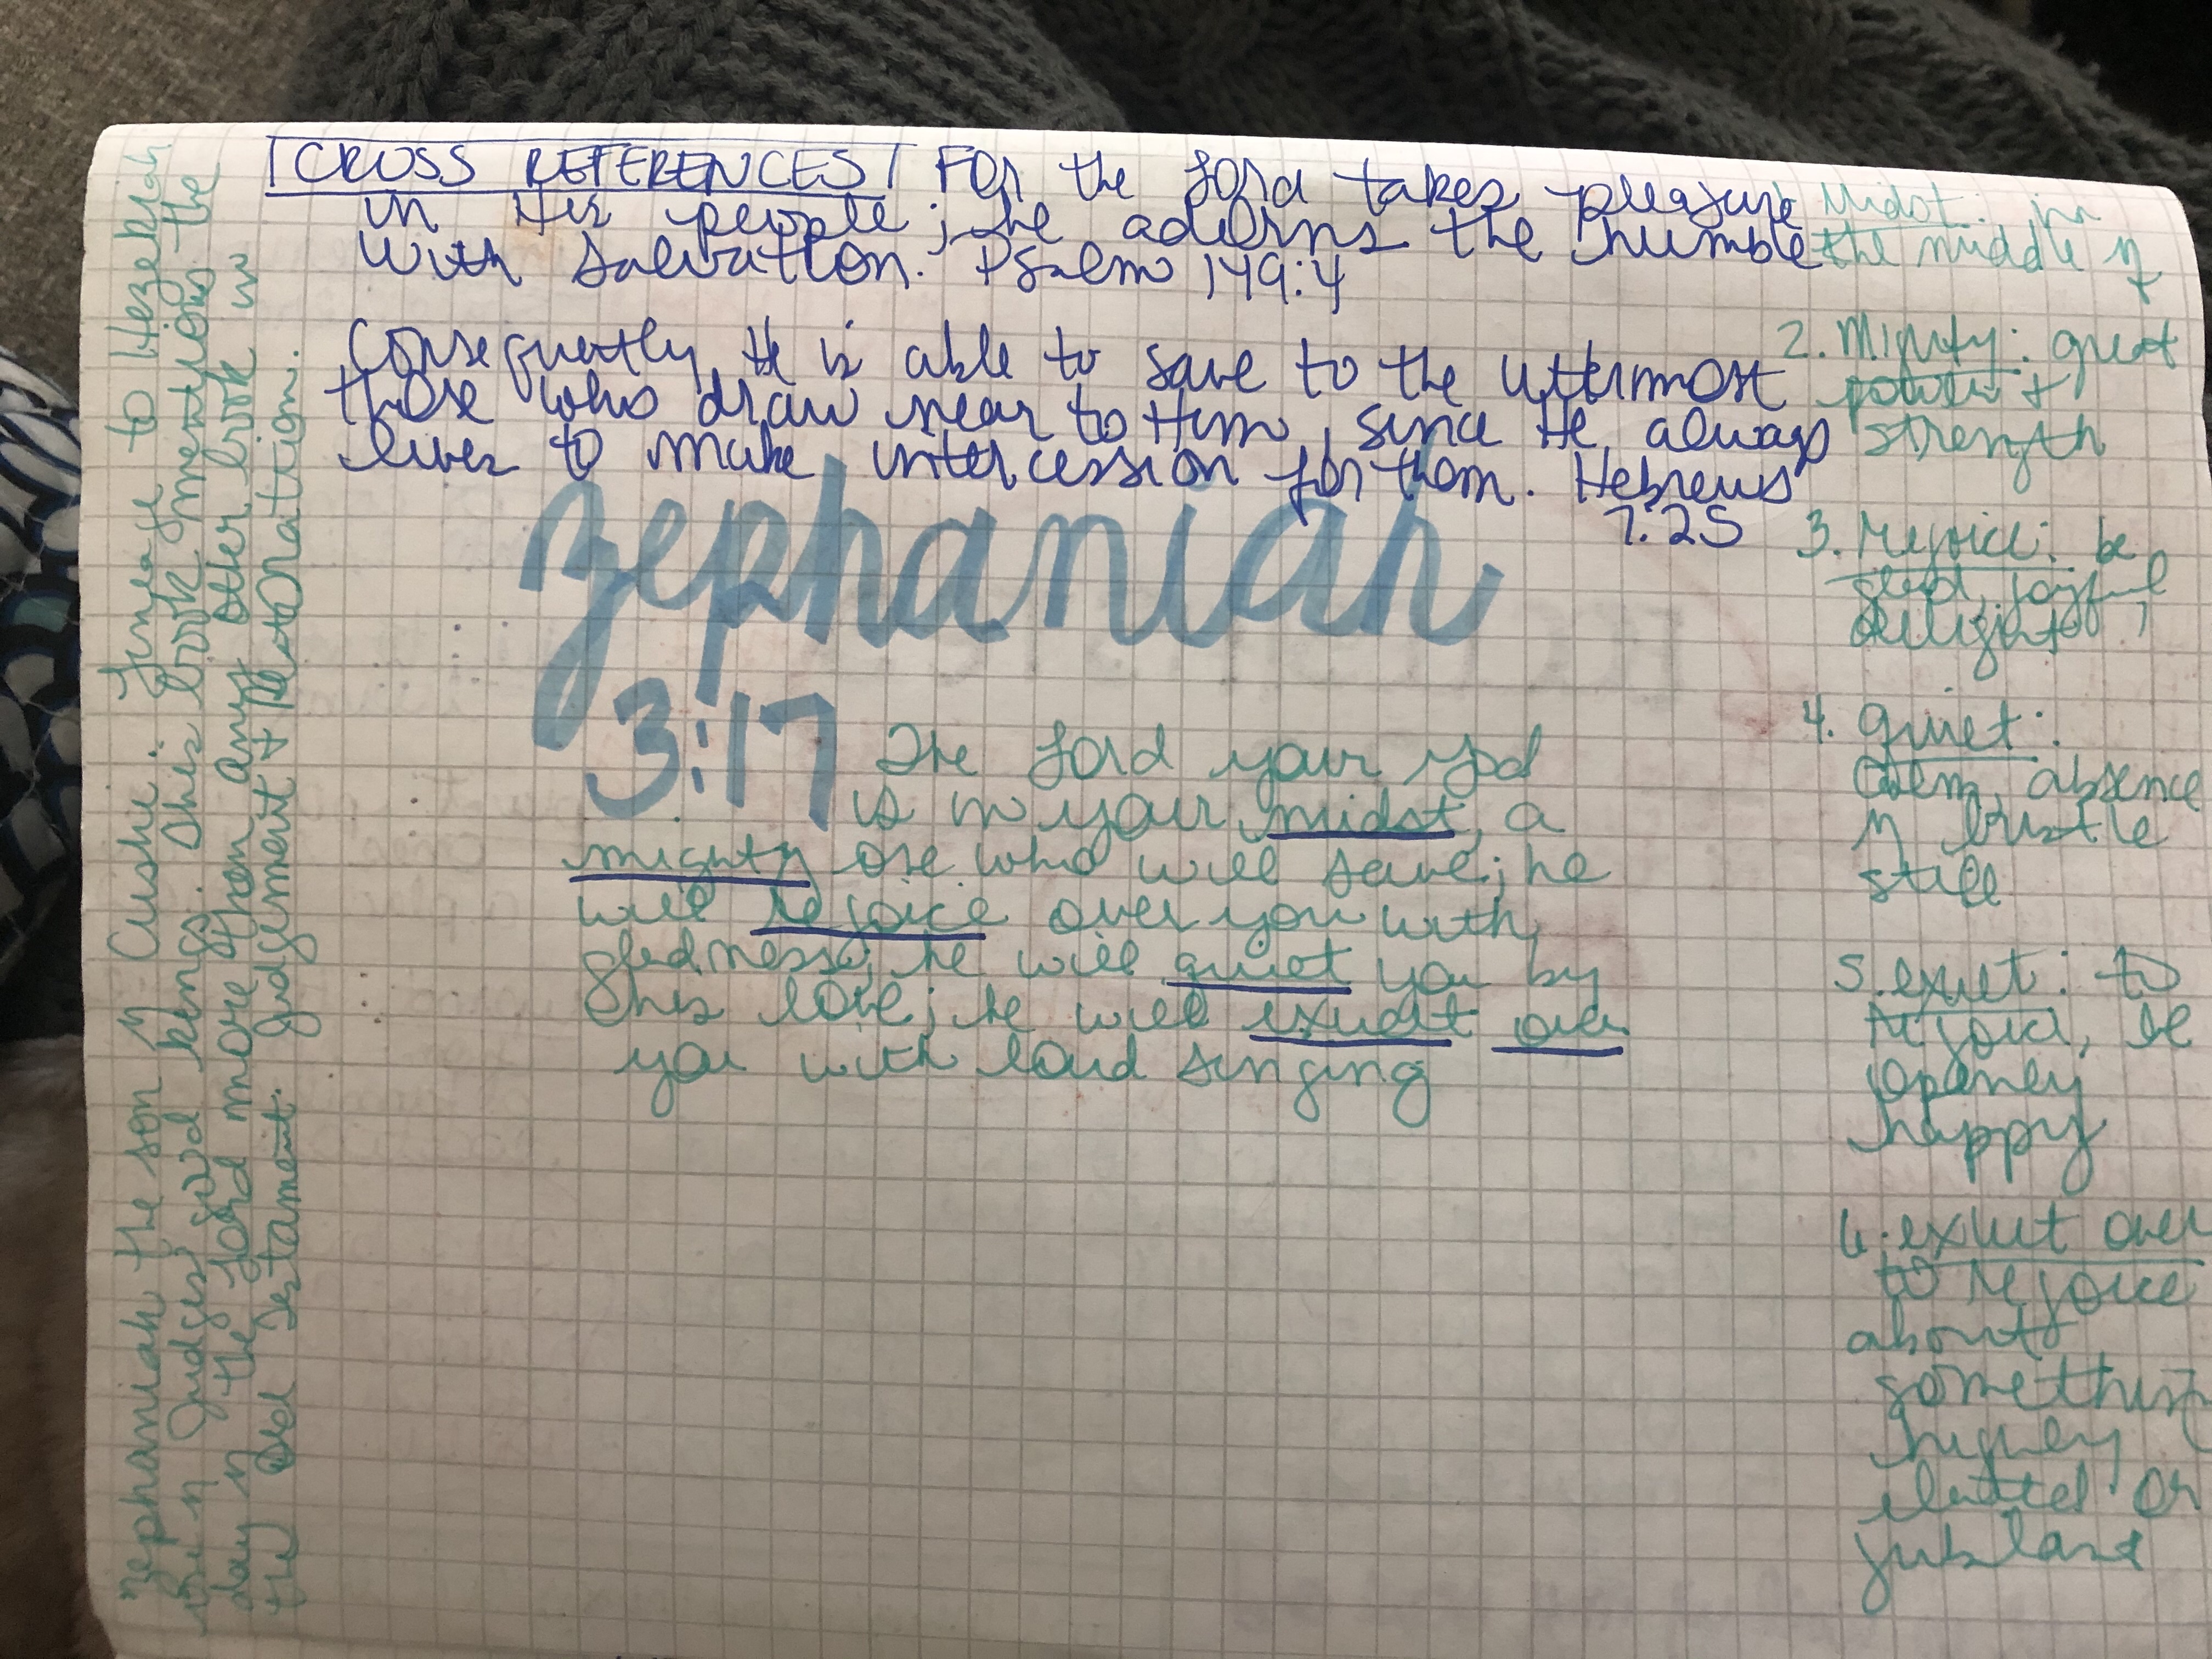 CROSS REFERENCES For the Lord takes pleasure
in His people; he adorns the humble
with salvation. Psalm 149:4
Consequently He is able to save to the uttermost
those who draw near to Him, since He always
lives to make intercession for them. Hebrews
7.25
Zephaniah
3:17
The Lord your God
is in your midst, a
mighty one who will save; he
will rejoice over you with
gladness; he will quiet you by
his love; he will exult over
you with loud singing
Midst: in
the middle of
2. Mighty: great
power +
strength
3. Rejoice: be
glad, joyful
delighted
4. quiet:
calm, absence
of bustle
still
5. exult: to
rejoice, be
openly
happy
6. exult over
to rejoice
about
something
highly
elated or
jubilant
Zephaniah the son of Cushi: lineage to Hezekiah
one of Judges good kings. This book mentions the
day of the Lord more than any other book in
the Old Testament. Judgement + Restoration.